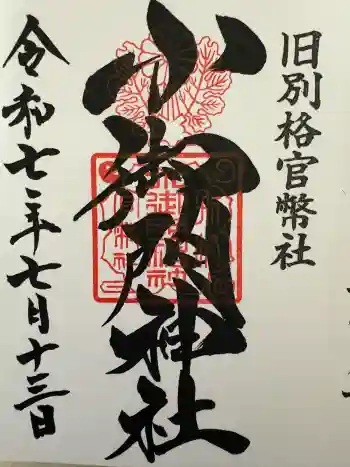 旧別格官幣社
小御門神社
令和七年七月十三日